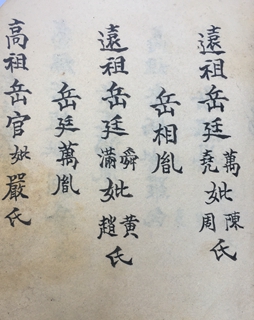 遠祖岳廷萬堯妣陳周氏
岳相胤
遠祖岳廷舜滿妣黃趙氏
岳廷萬胤
高祖岳官妣嚴氏